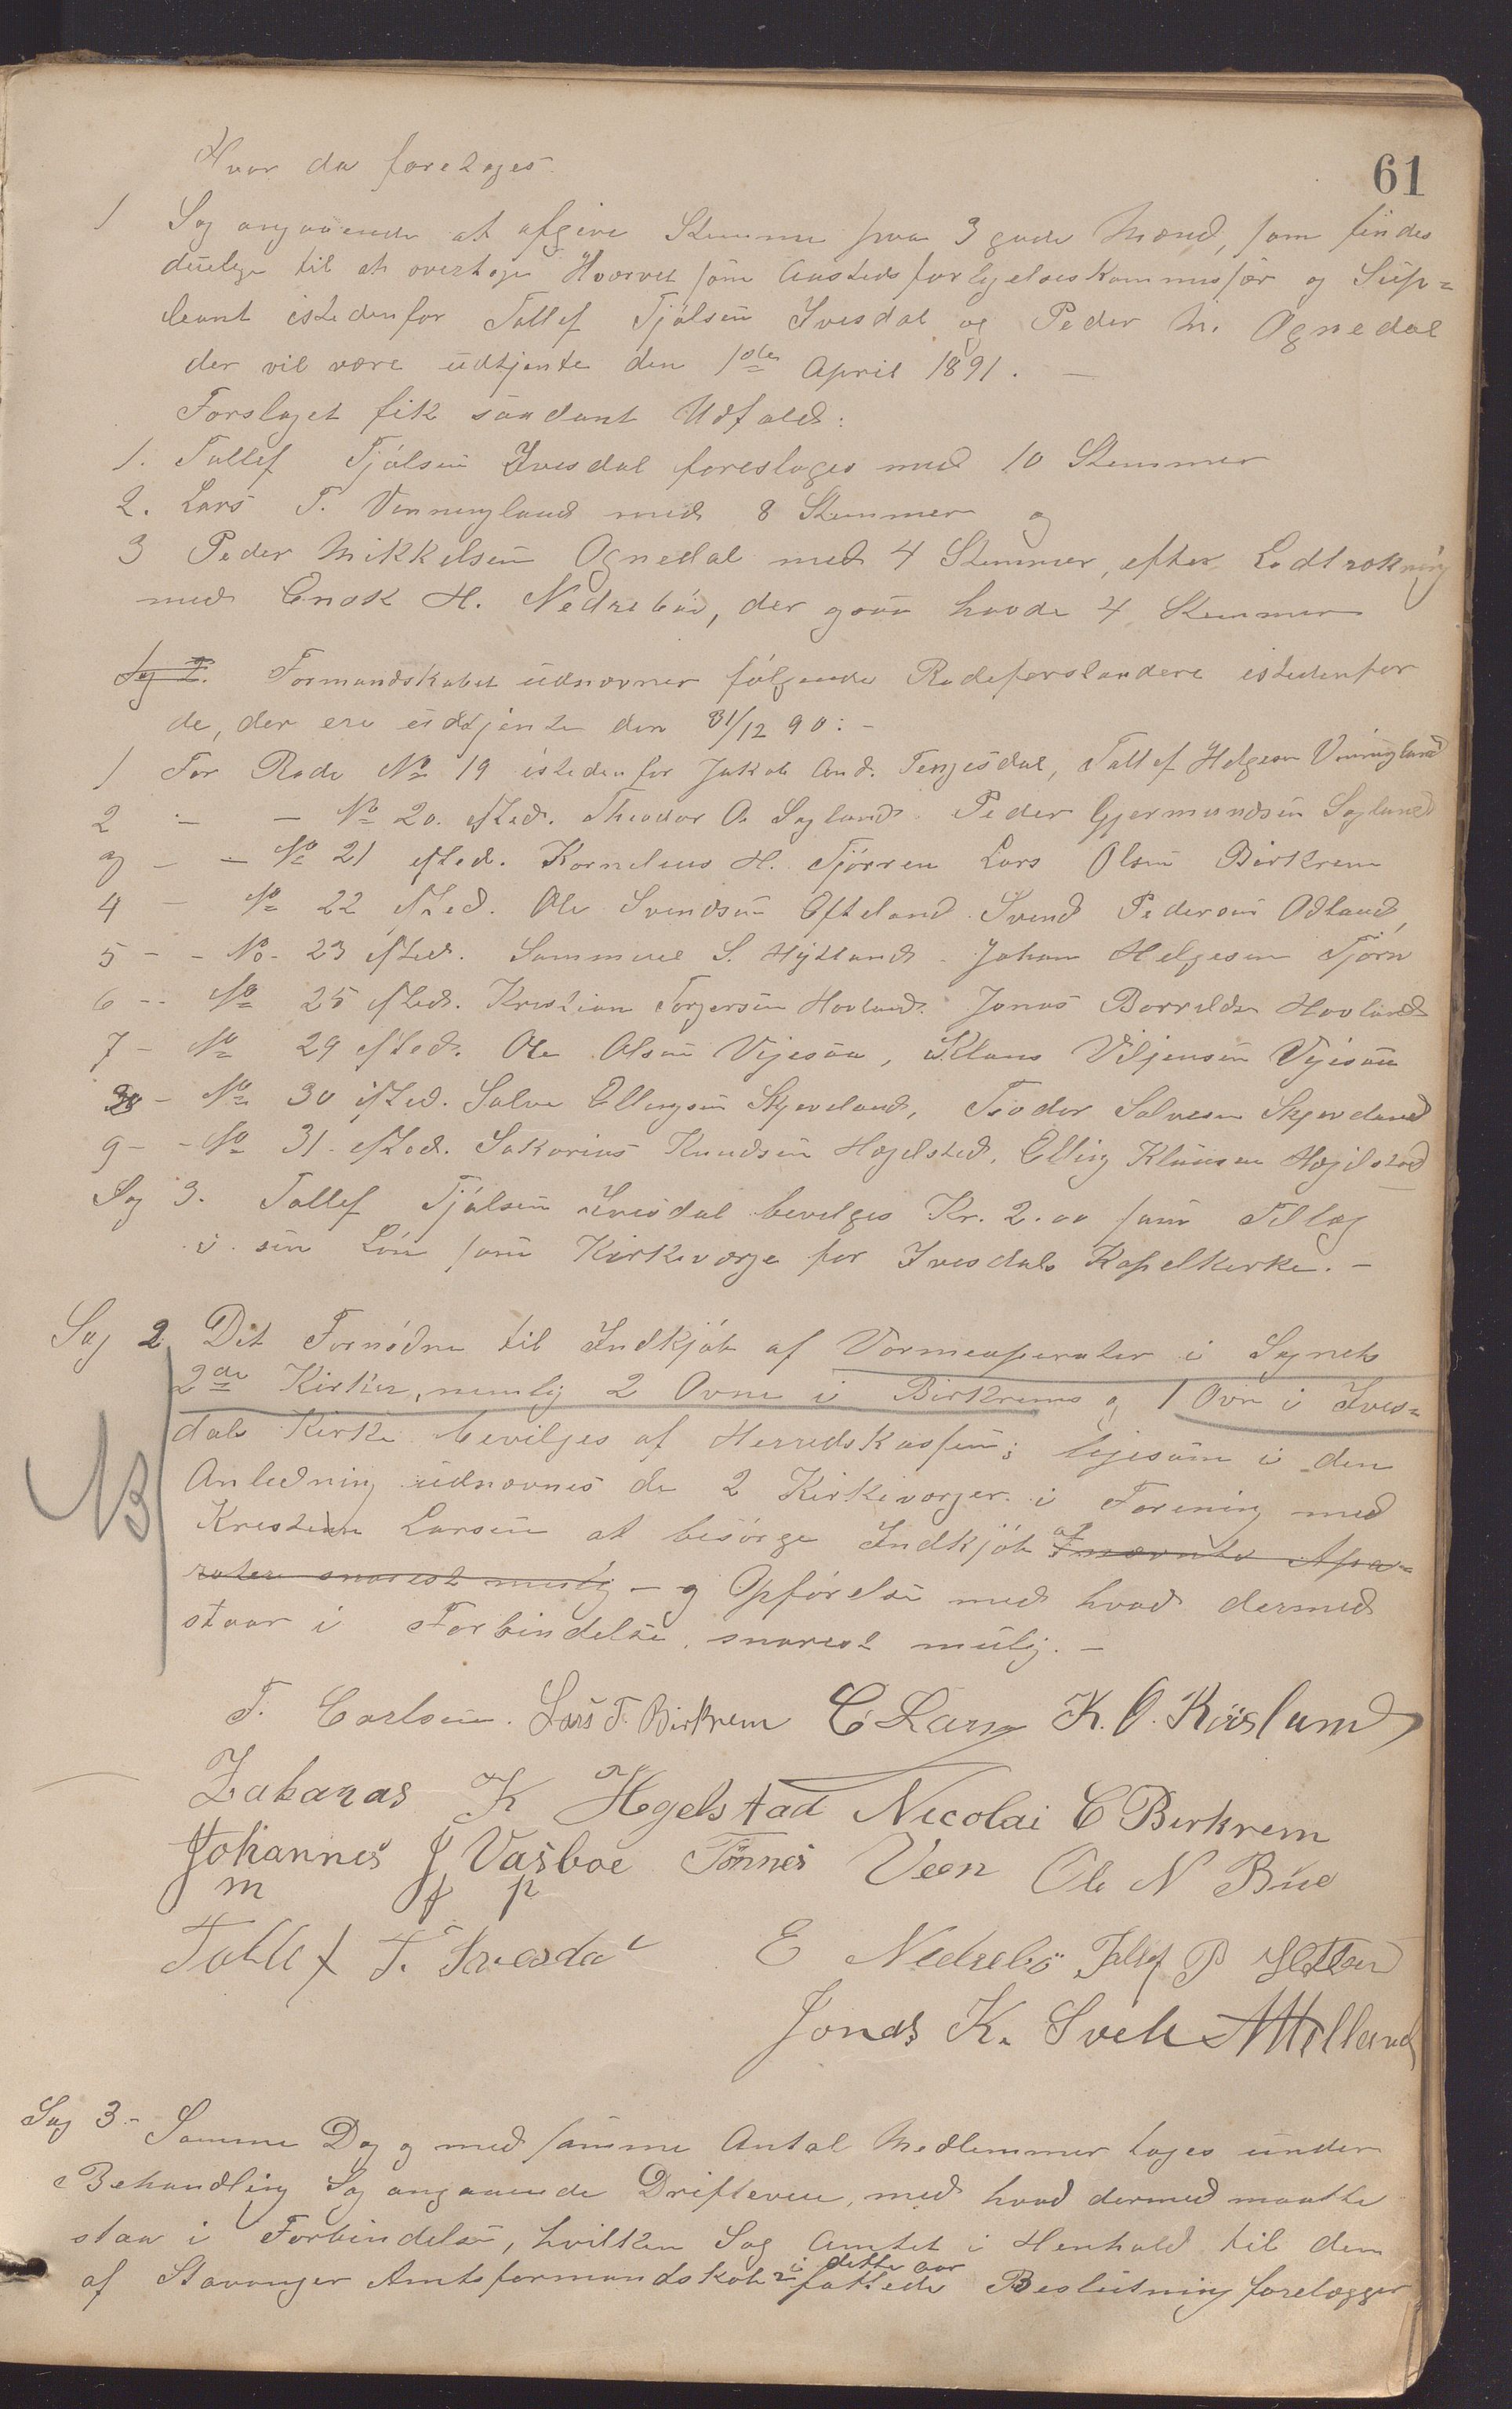 61
Hvor da foretoges.
1 Sag angaaende at afgive Stemme paa 3 gode Mænd, som findes
duelige til at overtage Hvervet som Aastedsforligelseskommissær og Sup=
leant istedenfor Tollef Tjølsen Ivesdal og Peder M. Ognedal
der vil være udtjente den 1ste April 1891. —
Forslaget fik saadant Udfald:
1. Tollef Tjølsen Ivesdal foreslages med 10 Stemmer
2. Lars T. Vinningland med 8 Stemmer og
3 Peder Mikkelsen Ognedal med 4 Stemmer, efter Lodtrækning
med Enok H. Nedrebø, der ogsaa havde 4 Stemmer
Sag 2. Formandskabet udnævner følgende Rodeforstandere istedenfor
de, der ere udtjente den 31/12 90: -
1 For Rode No 19 istedenfor Jakob And. Tengesdal, Tollef Helgesen Vinningland
2 — — No 20. isted. Theodor O. Sagland. Peder Gjermundsen Sagland
3 — — No 21 isted. Kornelius H. Tjørren Lars Olsen Birkrem
4 — No 22 isted. Ole Svendsen Efteland. Svend Pedersen Odland,
5 - - No. 23 isted. Sammuel S. Hytland - Johan Helgesen Tjørn
6 - - No 25 isted. Kristian Torgersen Hovland. Jonas Borrildsen Hovland
7 - No 29 isted. Ole Olsen Vigesaa, Klaus Viljensen Vigesaa
8 - No 30 isted. Salve Ellingsen Skjeveland, Teodor Salvesen Skjeveland
9 - - No 31. isted. Sakarias Knudsen Hægelsted, Elling Klausen Hægelstad
Sag 3. Tollef Tjølsen Ivesdal bevilges Kr. 2.00 som Tillæg
i sin Løn som Kirkeværge for Ivesdals Kapelkirke. -
Sag 2 Det Fornødne til Indkjøb af Varmeaparater i Sognets
2de Kirker, nemlig 2 Ovne i Birkrems og 1 Ovn i Ives=
dals Kirke bevilges af Herredskassen; ligesom i den
NB
Anledning udnævnes de 2 Kirkeværger i Forening med
Kristian Larsen at besørge Indkjøb af nævnte Apa=
rater snarest mulig - og Opførelse med hvad dermed
staar i Forbindelse, snarest mulig. -
T. Carlsen. Lars T. Birkrem C Larsen K. O. Røisland
Zakarias K Hegelstad Nicolai C Birkrem
Johannes J Vasboe Tønnes Veen Ole N Bue
m f p
Tollef T. Ivesdal E Nedrebø Tollef P
Jonas K. Svele
Sag 3 - Samme Dag og med samme Antal Medlemmer toges under
Behandling Sag angaaende Drifteveie, med hvad dermed maatte
staa i Forbindelse, hvilken Sag Amtet i Henhold til den
af Stavanger Amtsformandskab i dette aar fattede Beslutning forelægger